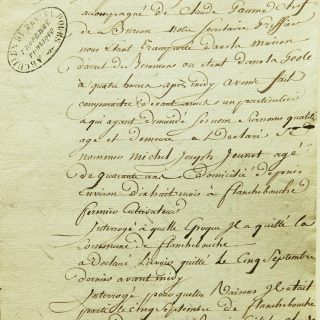 accompagné de Claude Jaune Chef
de Bureau notre Secretaire Greffier
nous étant transporté dans la maison
d'arret de Besancon ou etant dans la Geole
à quatre heures après midy avons fait
comparoitre pardevant nous un particulier
a qui ayant demandé ses nom Surnoms qualité
age et demeure a declaré Se
nommer Michel Joseph Jeunot agé
de quarante ans domicilié depuis
environ dixhuit mois à flanchebouche
fermier Cultivateur
Interrogé à quelle Epoque Il a quitté la
Commune de flanchebouche
a Declaré l'avoir quitté le Cinq Septembre
dernier avant midy
Interrogé pour quelles Raisons Il etait
parti le cinq Septembre de flanchebouche